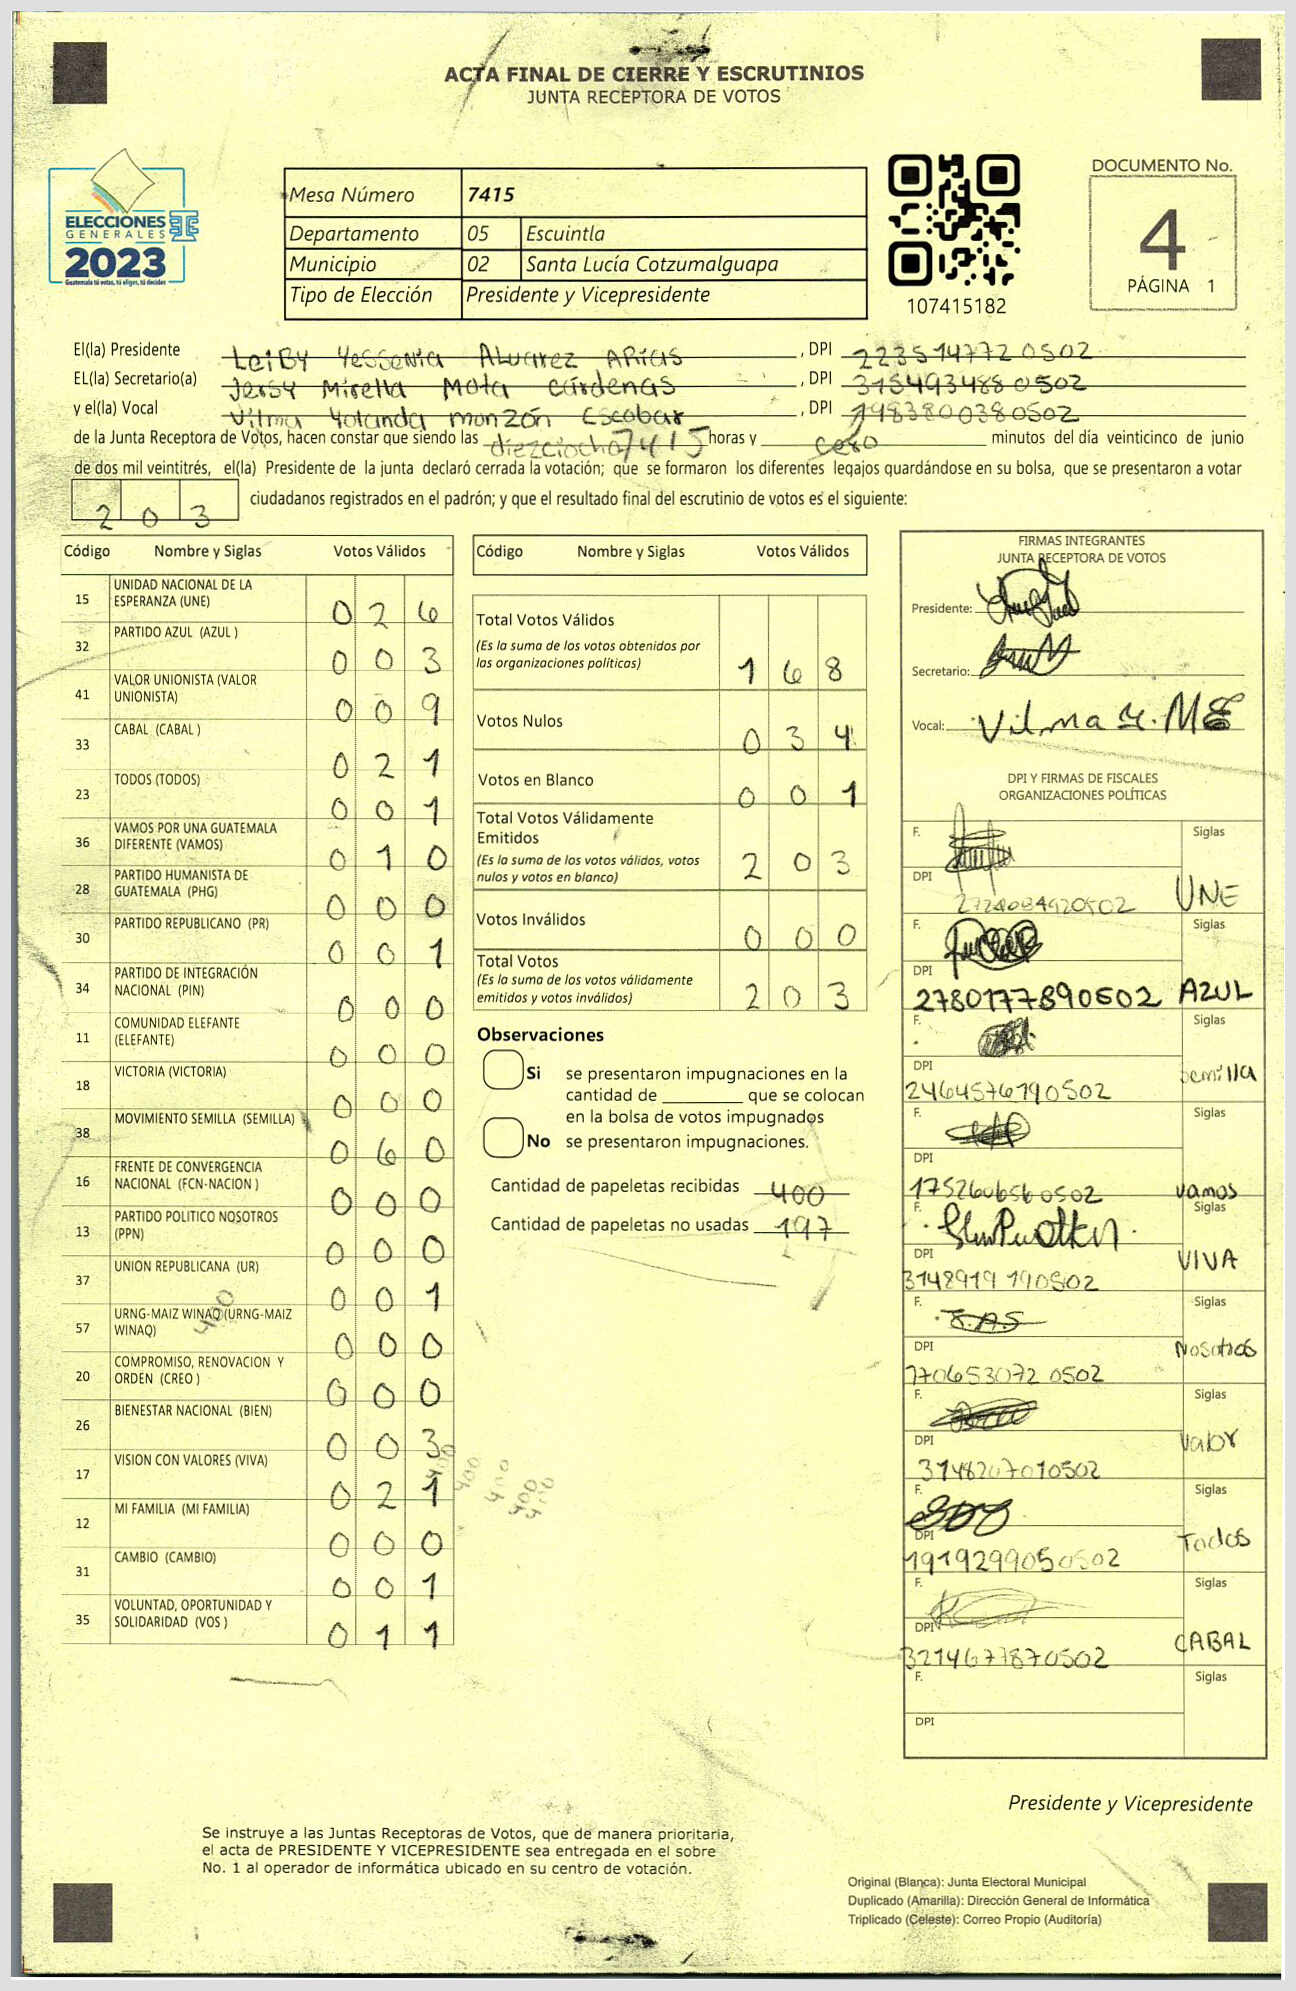 ACTA FINAL DE CIERRE Y ESCRUTINIOS
JUNTA RECEPTORA DE VOTOS
ELECCIONES
GENERALES
2023
Guatemala tú votas, tú eliges, tú decides
Mesa Número 7415
Departamento 05 Escuintla
Municipio 02 Santa Lucía Cotzumalguapa
Tipo de Elección Presidente y Vicepresidente
107415182
DOCUMENTO No.
4
PÁGINA 1
El(la) Presidente LeiBy Yessenia Alvarez Arias , DPI 223514772 0502
EL(la) Secretario(a) Jersy Mirella Mota Cárdenas , DPI 315493488 0502
y el(la) Vocal Vilma Yolanda monzón Escobar , DPI 198380038 0502
de la Junta Receptora de Votos, hacen constar que siendo las diezciocho 7415 horas y cero minutos del día veinticinco de junio
de dos mil veintitrés, el(la) Presidente de la junta declaró cerrada la votación; que se formaron los diferentes legajos guardándose en su bolsa, que se presentaron a votar
203 ciudadanos registrados en el padrón; y que el resultado final del escrutinio de votos es el siguiente:
Código Nombre y Siglas Votos Válidos
15 UNIDAD NACIONAL DE LA ESPERANZA (UNE) 0 2 6
32 PARTIDO AZUL (AZUL ) 0 0 3
41 VALOR UNIONISTA (VALOR UNIONISTA) 0 0 9
33 CABAL (CABAL ) 0 2 1
23 TODOS (TODOS) 0 0 1
36 VAMOS POR UNA GUATEMALA DIFERENTE (VAMOS) 0 1 0
28 PARTIDO HUMANISTA DE GUATEMALA (PHG) 0 0 0
30 PARTIDO REPUBLICANO (PR) 0 0 1
34 PARTIDO DE INTEGRACIÓN NACIONAL (PIN) 0 0 0
11 COMUNIDAD ELEFANTE (ELEFANTE) 0 0 0
18 VICTORIA (VICTORIA) 0 0 0
38 MOVIMIENTO SEMILLA (SEMILLA) 0 6 0
16 FRENTE DE CONVERGENCIA NACIONAL (FCN-NACION ) 0 0 0
13 PARTIDO POLITICO NOSOTROS (PPN) 0 0 0
37 UNION REPUBLICANA (UR) 0 0 1
57 URNG-MAIZ WINAQ (URNG-MAIZ WINAQ) 0 0 0
400
20 COMPROMISO, RENOVACION Y ORDEN (CREO ) 0 0 0
26 BIENESTAR NACIONAL (BIEN) 0 0 3
17 VISION CON VALORES (VIVA) 0 2 1
400 400 400 400 400
12 MI FAMILIA (MI FAMILIA) 0 0 0
31 CAMBIO (CAMBIO) 0 0 1
35 VOLUNTAD, OPORTUNIDAD Y SOLIDARIDAD (VOS ) 0 1 1
Código Nombre y Siglas Votos Válidos
Total Votos Válidos 1 6 8
(Es la suma de los votos obtenidos por
las organizaciones políticas)
Votos Nulos 0 3 4
Votos en Blanco 0 0 1
Total Votos Válidamente
Emitidos 2 0 3
(Es la suma de los votos válidos, votos
nulos y votos en blanco)
Votos Inválidos 0 0 0
Total Votos 2 0 3
(Es la suma de los votos válidamente
emitidos y votos inválidos)
Observaciones
Si se presentaron impugnaciones en la
cantidad de ________ que se colocan
en la bolsa de votos impugnados
No se presentaron impugnaciones.
Cantidad de papeletas recibidas 400
Cantidad de papeletas no usadas 197
FIRMAS INTEGRANTES
JUNTA RECEPTORA DE VOTOS
Presidente:
Secretario:
Vocal: Vilma Y. ME
DPI Y FIRMAS DE FISCALES
ORGANIZACIONES POLÍTICAS
F. Siglas
DPI UNE
F. Siglas
DPI 2780177890502 AZUL
F. Siglas
DPI 2464576190502 semilla
F. Siglas
DPI 175260656 0502 vamos
F. Siglas
DPI 3148919 190502 VIVA
F. Siglas
DPI 170653072 0502 Nosotros
F. Siglas
DPI 3148207010502 Valor
F. Siglas
DPI 1919299050502 Todos
F. Siglas
DPI 3214677870502 CABAL
F. Siglas
DPI
Presidente y Vicepresidente
Se instruye a las Juntas Receptoras de Votos, que de manera prioritaria,
el acta de PRESIDENTE Y VICEPRESIDENTE sea entregada en el sobre
No. 1 al operador de informática ubicado en su centro de votación.
Original (Blanca): Junta Electoral Municipal
Duplicado (Amarilla): Dirección General de Informática
Triplicado (Celeste): Correo Propio (Auditoría)